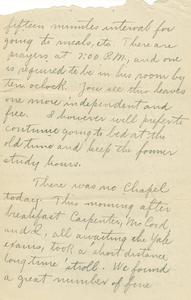 fifteen minutes interval for
going to meals, etc. There are
prayers at 7:00 P.M., and one
is required to be in his room by
ten o'clock. You see this leaves
one more independent and
free. I however will prefer to
continue going to bed at the
old time and keep the former
study hours.
There was no Chapel
today. This morning after
breakfast Carpenter, McCord
and I, all awaiting the Yale
exams, took a short distance,
long time 'stroll'. We found
a great number of fine